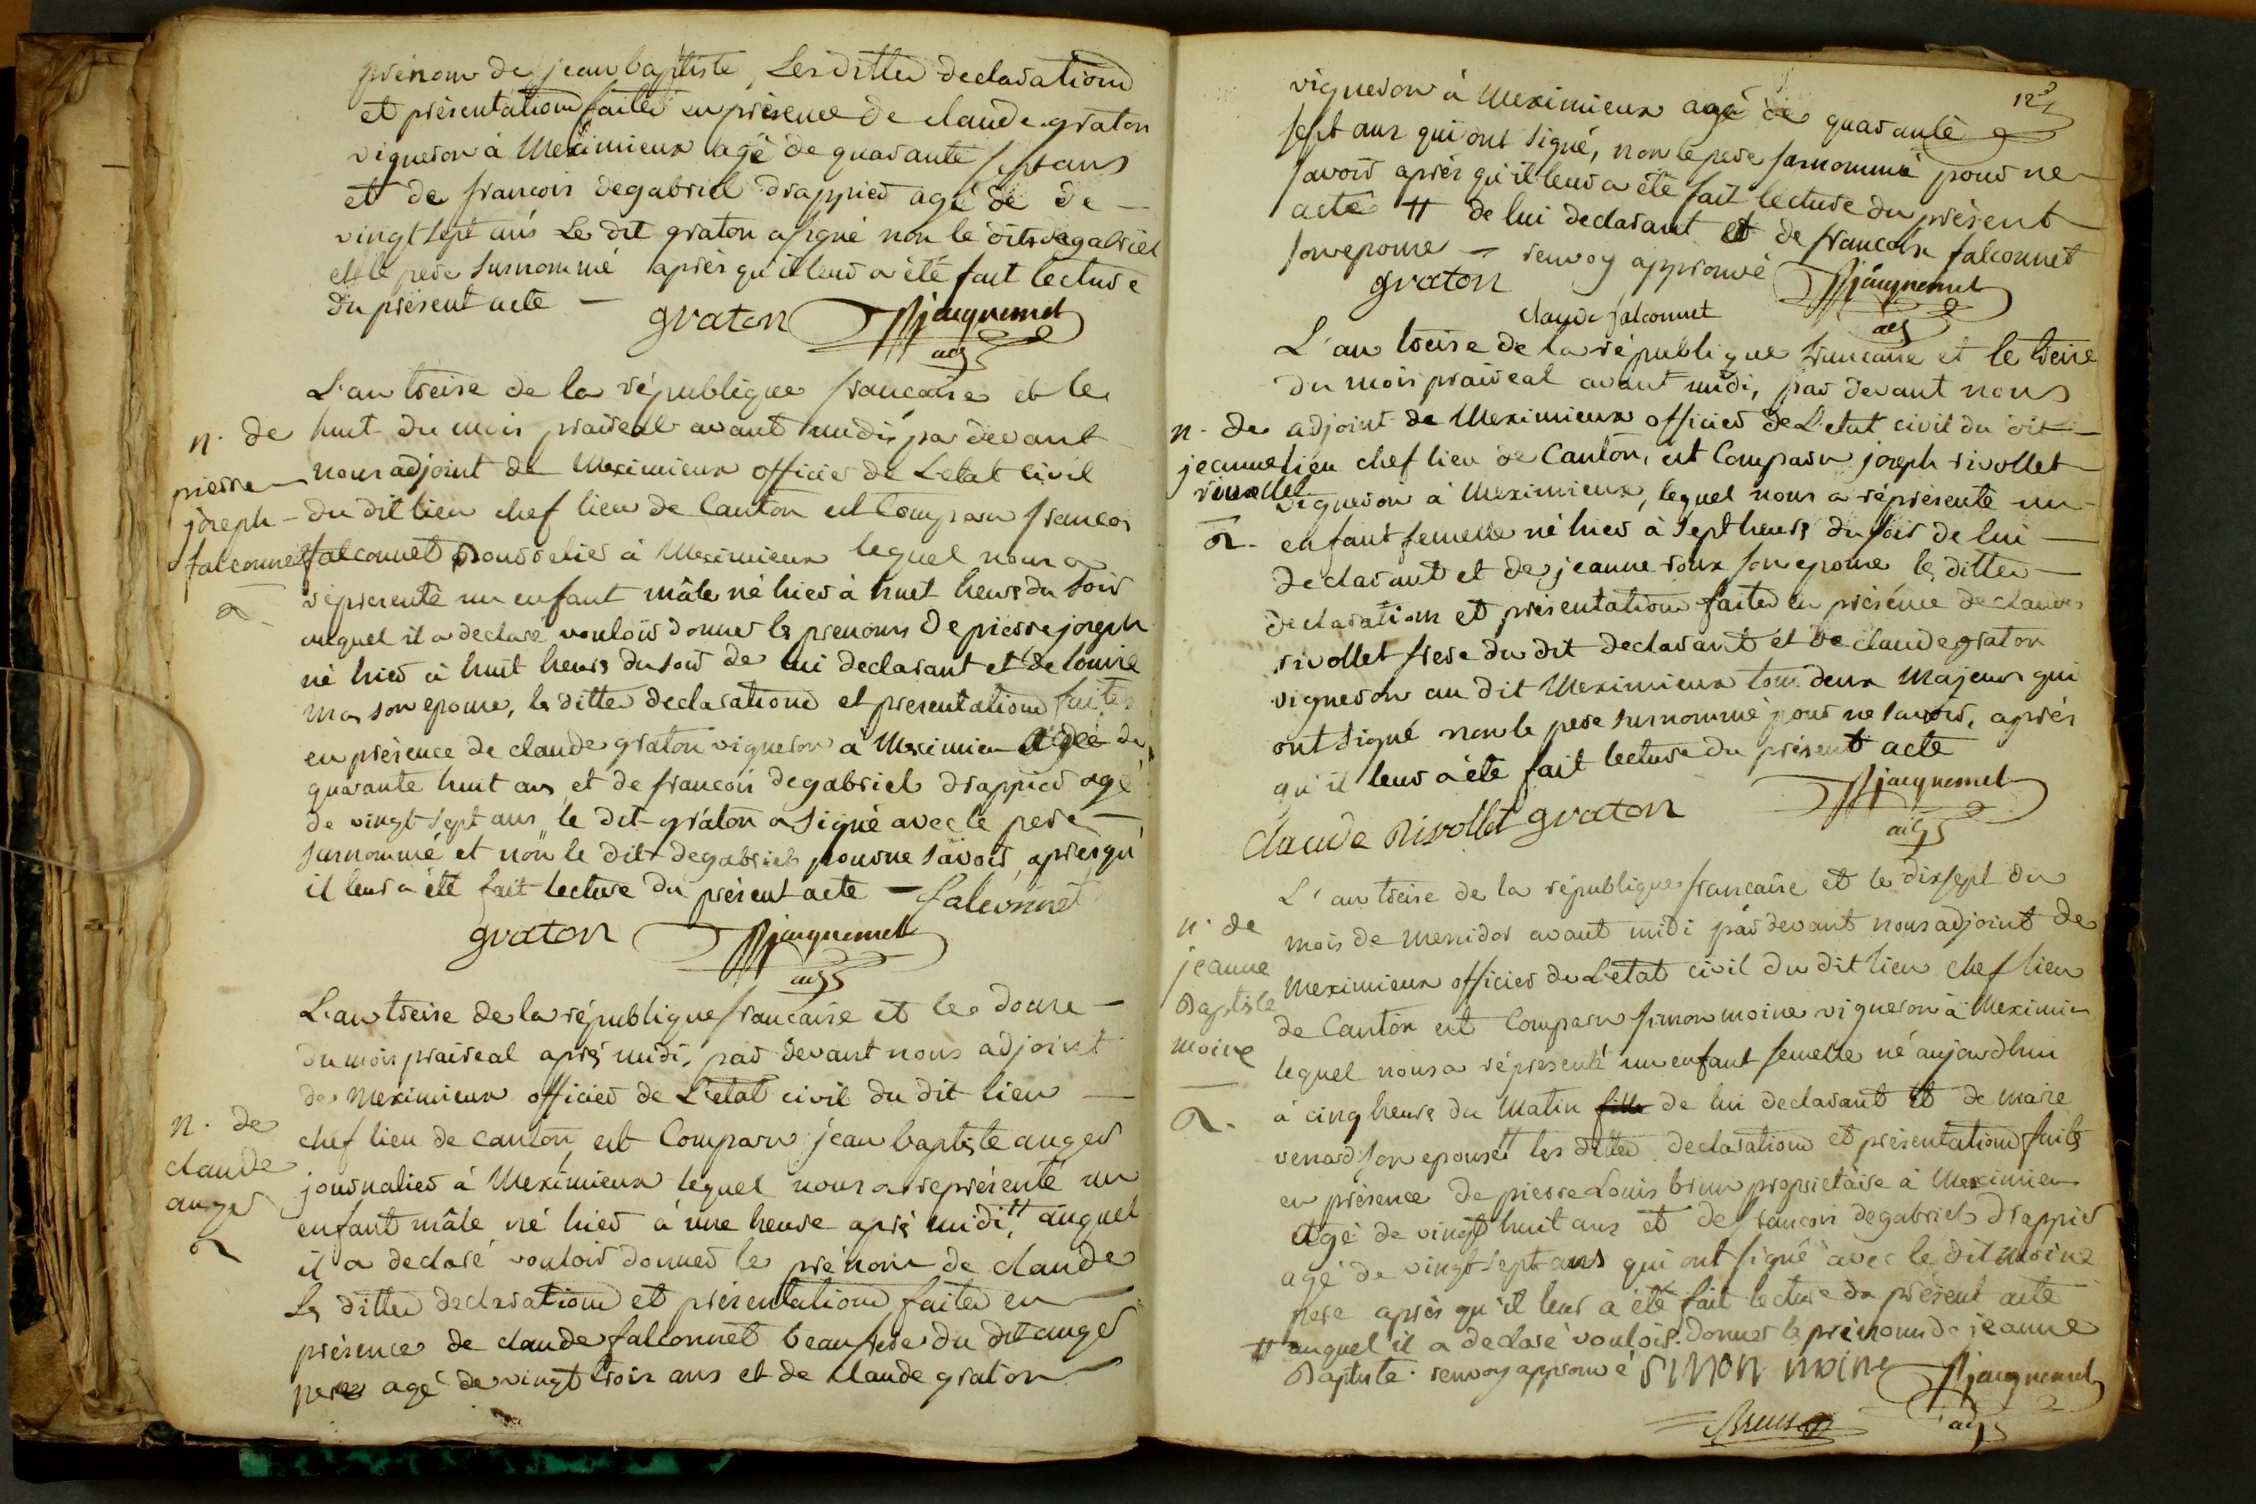 prénom de jean baptiste, Les dittes declarations
et présentations faites en présence de claude graton
vigneron à Meximieux agé de quarante sept ans
et de francois degabriel drappier agé de de —
vingt sept ans Le dit graton a signé non le dit degabriel
et le pere surnommé après qu'il leur a été fait lecture
du présent acte —
graton Jacquemet
adj
L'an treise de la république francaise et le
n. de huit du mois praireal avant midi, par devant
pierre — nous adjoint de Meximieux officier de L'etat civil
joseph — du dit lieu chef lieu de Canton est Comparu francois
falconnet falconnet bourrelier à Meximieux lequel nous a
réprésenté un enfant mâle né hier à huit heurs du soir
auquel il a declaré vouloir donner les prenoms de pierre joseph
né hier à huit heurs du soir de lui declarant et de louise
mas son epouse, les dittes declarations et presentations faites
en présence de claude graton vigneron à Meximieu agée de
quarante huit ans et de francois degabriel drappier agé
de vingt sept ans le dit graton a signé avec le pere —
surnommé et non le dit degabriel pour ne savoir, apres qu'
il leur a été fait lecture du présent acte — falconnet
graton Jacquemet
adj
L'an treise de la république francaise et le douse —
du mois praireal après midi, par devant nous adjoint
de Meximieux officier de L'etat civil du dit lieu —
n. de chef lieu de canton, est Comparu jean baptiste auger
claude journalier à Meximieux lequel nous a représenté un
auger enfant mâle né hier à une heure après midi # auquel
il a declaré vouloir donner le prénom de claude
Les dittes declarations et présentations faites en —
présence de claude falconnet beau frere du dit auger
pere agé de vingt trois ans et de claude graton —
123
vigneron à Meximieux agé de quarante
sept ans qui ont signé, non le pere surnommé pour ne
savoir après qu'il leur a été fait lecture du présent
acte # de lui declarant et de francoise falconnet
son epouse — renvoy approuvé
graton Jacquemet
claude falconnet adj
L'an treise de la république francaise et le treise
du mois praireal avant midi, par devant nous
n. de adjoint de Meximieux officier de L'etat civil du dit —
jeanne lieu chef lieu de Canton, est Comparu joseph rivollet —
rivollet vigneron à Meximieux, lequel nous a réprésenté un
enfant femelle né hier à sept heurs du soir de lui —
declarant et de jeanne roux son epouse les dittes —
declarations et présentations faites en présence de claude
rivollet frere du dit declarant et de claude graton
vigneron au dit Meximieux tous deux Majeurs qui
ont signé non le pere surnommé pour ne savoir, après
qu'il leur a été fait lecture du présent acte
Claude Rivollet graton Jacquemet
adj
L'an treise de la république francaise et le dix sept du
n. de mois de messidor avant midi par devant nous adjoint de
jeanne Meximieux officier de L'etat civil du dit lieu chef lieu
Baptiste de Canton est Comparu simon moine vigneron à Meximieu
moine lequel nous a réprésenté un enfant femelle né aujourdhui
à cinq heurs du Matin fille de lui declarant et de marie
venard son epouse # les dittes declarations et présentations faites
en présence de pierre Louis brun propriétaire à Meximieu
Agé de vingt huit ans et de francois degabriel drappier
agé de vingt sept ans qui ont signé avec le dit moine
pere après qu'il leur a été fait lecture du présent acte
# auquel il a declaré vouloir donner le prénom de jeanne
Baptiste. renvoy approuvé SIMON moine Jacquemet
adj